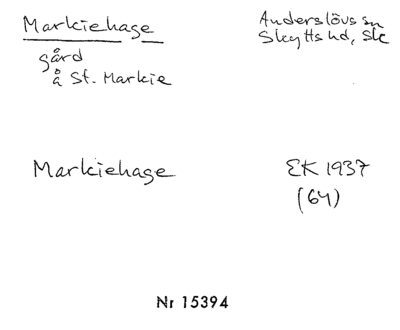 Markiehage
Anderslövs sn
Skytts hd, Sk
gård
å St. Markie
Markiehage
EK 1937
(64)
Nr 15394